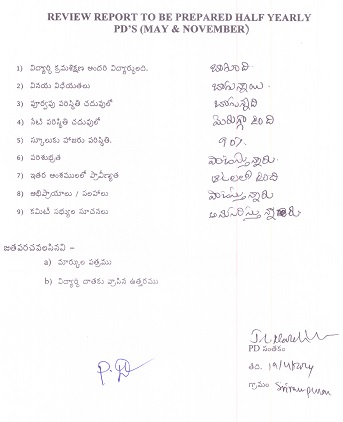 REVIEW REPORT TO BE PREPARED HALF YEARLY
PD'S (MAY & NOVEMBER)
1) విద్యార్థి క్రమశిక్షణ అందరి విద్యార్థులది. బాగుంది
2) వినయ విధేయతలు బాగున్నాయి.
3) పూర్వపు పరిస్థితి చదువులో బాగున్నది
4) నేటి పరిస్థితి చదువులో మెరుగ్గా ఉంది
5) స్కూలుకు హాజరు పరిస్థితి. 90%
6) పరిశుభ్రత పాటిస్తున్నారు.
7) ఇతర అంశములలో ప్రావీణ్యత ఆటలలో ఉంది
8) అభిప్రాయాలు / సలహాలు పాటిస్తున్నారు
9) కమిటీ సభ్యుల సూచనలు అనుసరిస్తున్నారు
జతపరచవలసినవి –
a) మార్కుల పత్రము
b) విద్యార్థి దాతకు వ్రాసిన ఉత్తరము
PD సంతకం
P. D
తేది.
గ్రామం